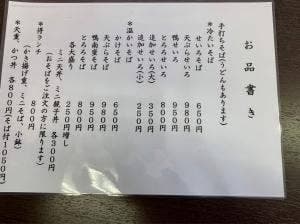 お品書き
手打ちそば(うどんもあります)
*冷たいそば
せいろそば 650円
天ぷらせいろ 950円
鴨せいろ 950円
とろろせいろ 800円
追加せいろ(大) 350円
追加せいろ(小) 250円
*温かいそば
かけそば 650円
天ぷらそば 950円
鴨南蛮そば 980円
とろろそば 800円
各大盛り 250円増し
ミニ天丼、ミニ親子丼 各300円
(おそばをご注文の方に限ります)
*得ランチ 800円
(かき揚げ重、ミニそば、小鉢)
*天重、かつ丼 各800円(そば付1050円)